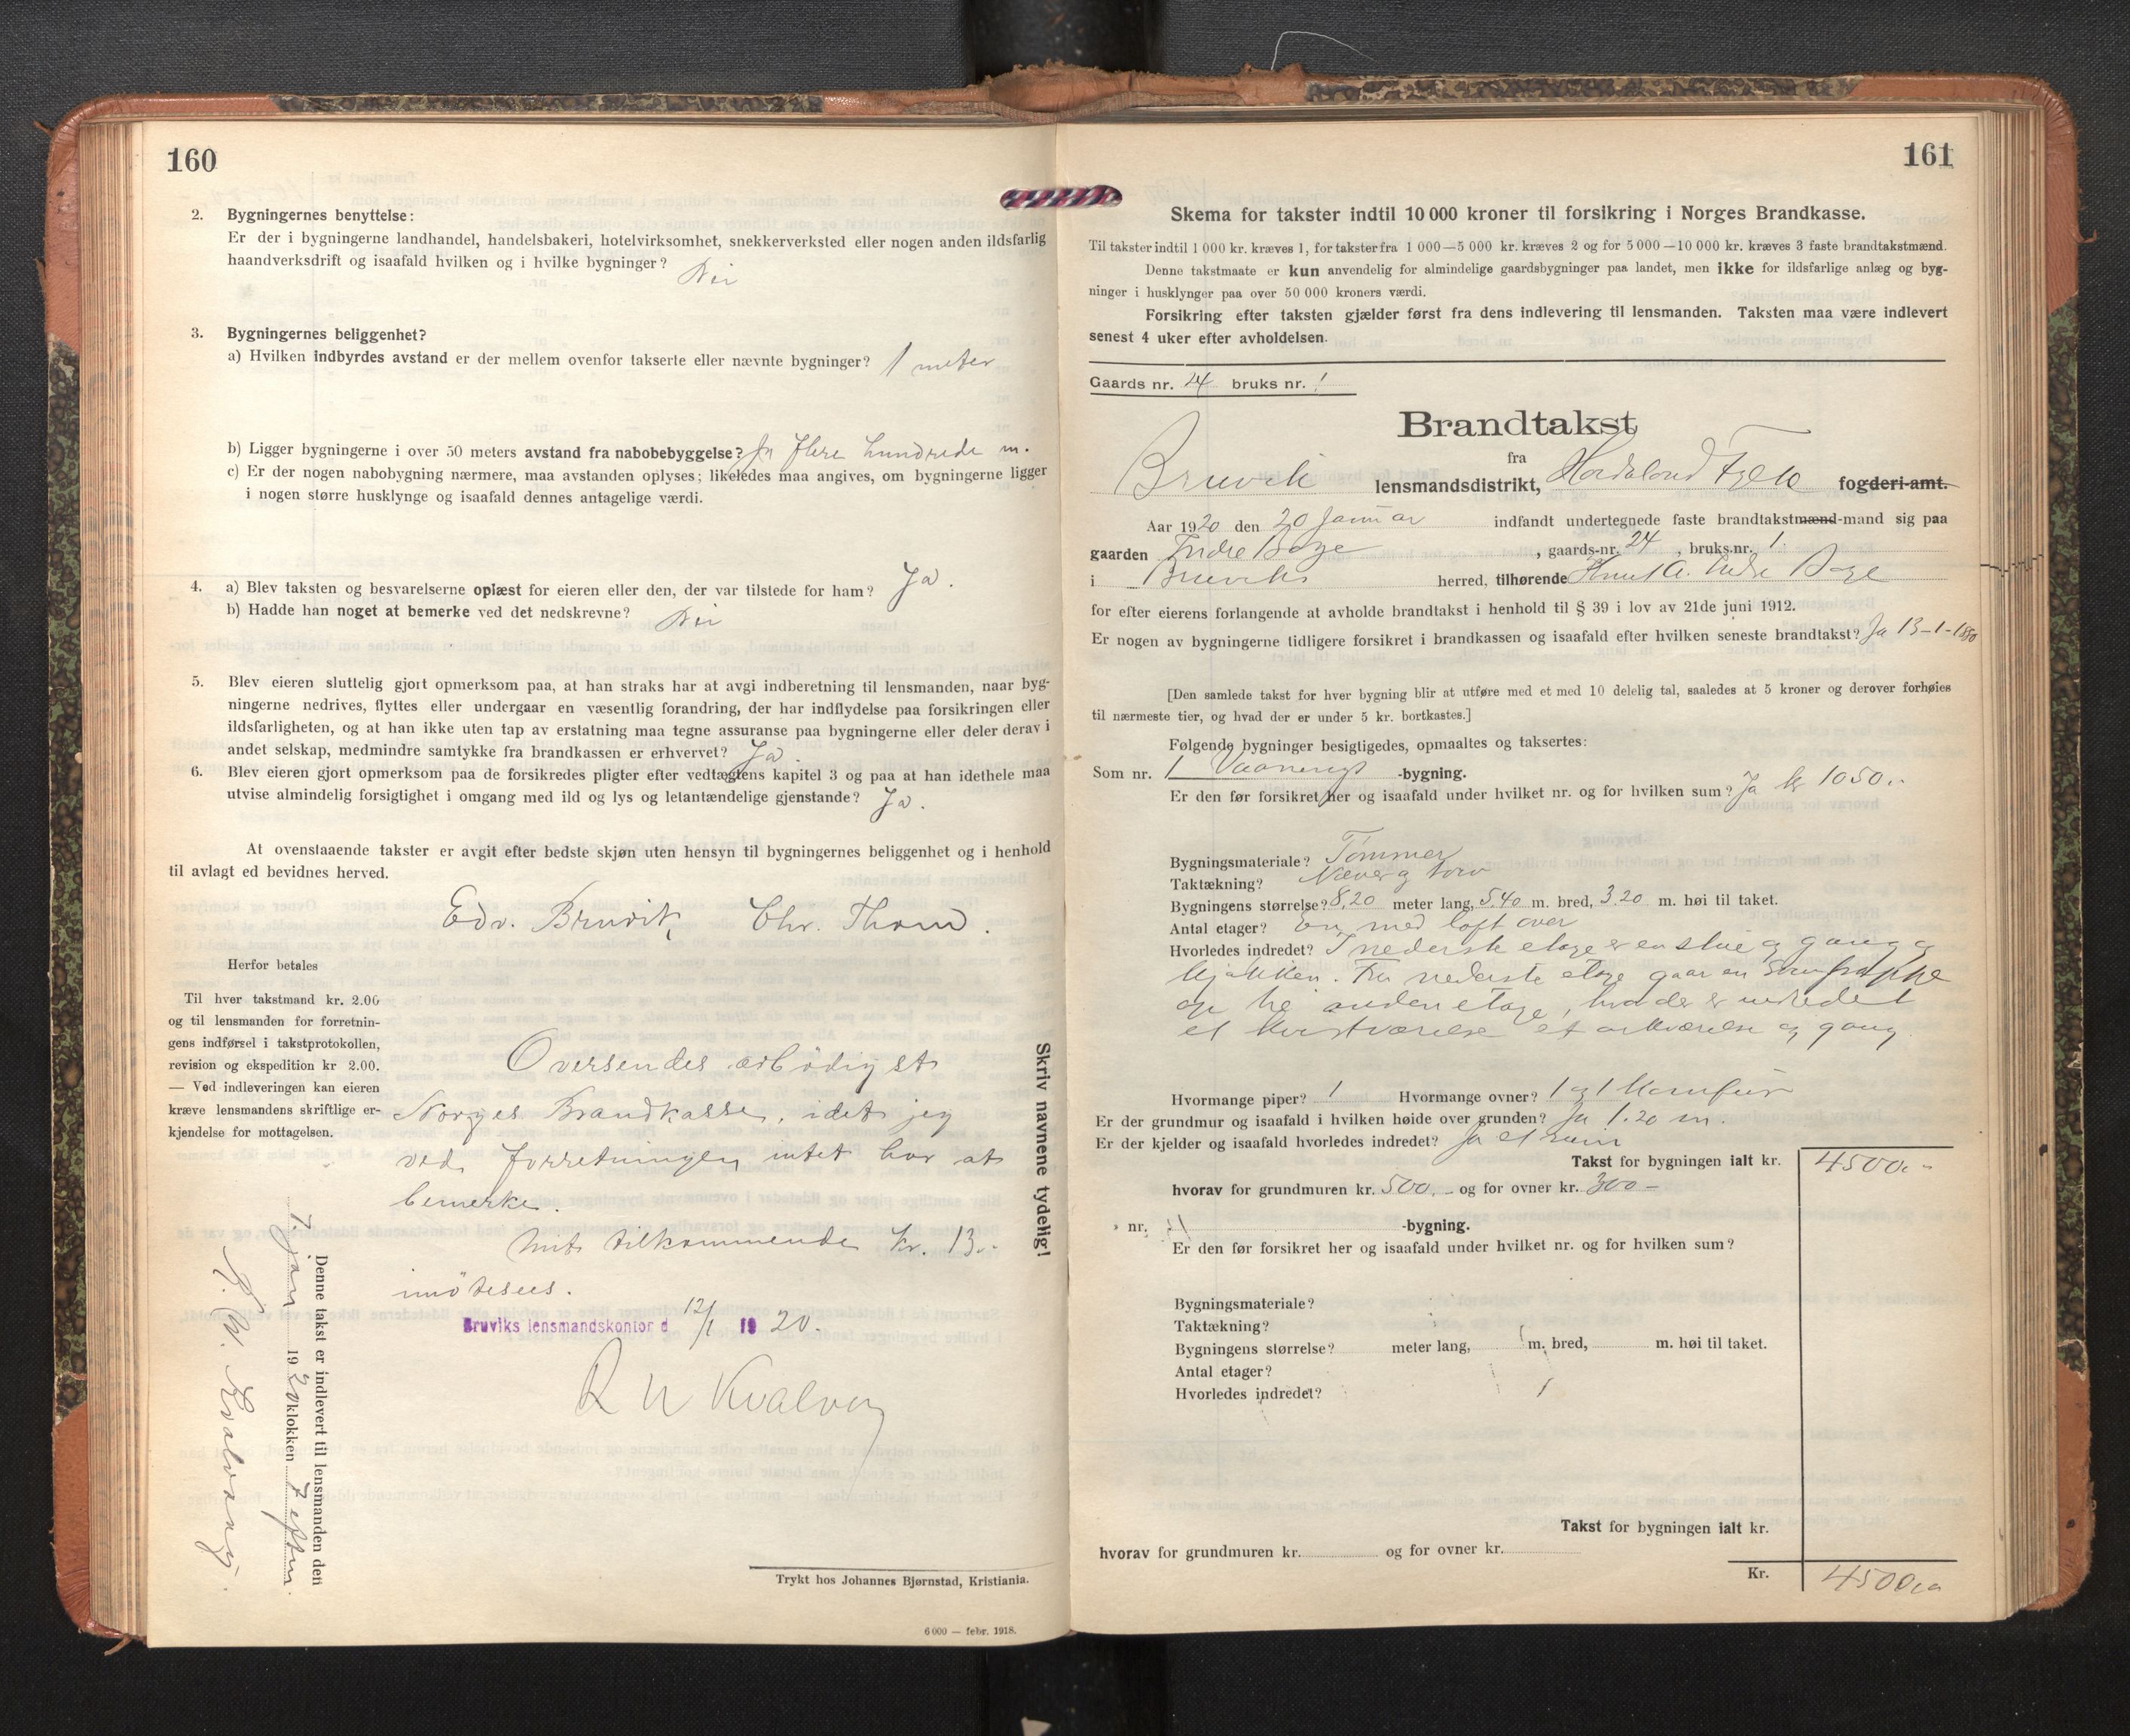 160
2. Bygningernes benyttelse:
Er der i bygningerne landhandel, handelsbakeri, hotelvirksomhet, snekkerverksted eller nogen anden ildsfarlig
haandverksdrift og isaafald hvilken og i hvilke bygninger? Nei
3. Bygningernes beliggenhet?
a) Hvilken indbyrdes avstand er der mellem ovenfor takserte eller nævnte bygninger? 1 meter
b) Ligger bygningerne i over 50 meters avstand fra nabobebyggelse? Ja flere hundrede m.
c) Er der nogen nabobygning nærmere, maa avstanden oplyses; likeledes maa angives, om bygningerne ligger
i nogen større husklynge og isaafald dennes antagelige værdi.
4. a) Blev taksten og besvarelserne oplæst for eieren eller den, der var tilstede for ham? Ja.
b) Hadde han noget at bemerke ved det nedskrevne? Nei
5. Blev eieren sluttelig gjort opmerksom paa, at han straks har at avgi indberetning til lensmanden, naar byg-
ningerne nedrives, flyttes eller undergaar en væsentlig forandring, der har indflydelse paa forsikringen eller
ildsfarligheten, og at han ikke uten tap av erstatning maa tegne assuranse paa bygningerne eller deler derav i
andet selskap, medmindre samtykke fra brandkassen er erhvervet? Ja.
6. Blev eieren gjort opmerksom paa de forsikredes pligter efter vedtægtens kapitel 3 og paa at han idethele maa
utvise almindelig forsigtighet i omgang med ild og lys og letantændelige gjenstande? Ja.
At ovenstaaende takster er avgit efter bedste skjøn uten hensyn til bygningernes beliggenhet og i henhold
til avlagt ed bevidnes herved.
Edv. Bruvik, Chr. Thom.
Herfor betales
Til hver takstmand kr. 2.00
og til lensmanden for forretnin-
gens indførsel i takstprotokollen,
revision og ekspedition kr 2.00.
— Ved indleveringen kan eieren
kræve lensmandens skriftlige er-
kjendelse for mottagelsen.
Oversendes ærbödigst
Norges Brandkasse, idet jeg
ved forretningen intet har at
bemerke.
Mit tilkommende kr. 13.-
imötesees.
Bruviks lensmandskontor d 12/1 19 20.
R N Kvalvaag
Skriv navnene tydelig!
Denne takst er indlevert til lensmanden den
7 jan 1920 klokken 7 eftm.
R. N. Kvalvaag.
Trykt hos Johannes Bjørnstad, Kristiania.
6000 — febr. 1918.
161
Skema for takster indtil 10 000 kroner til forsikring i Norges Brandkasse.
Til takster indtil 1 000 kr. kræves 1, for takster fra 1 000—5 000 kr. kræves 2 og for 5 000—10 000 kr. kræves 3 faste brandtakstmænd.
Denne takstmaate er kun anvendelig for almindelige gaardsbygninger paa landet, men ikke for ildsfarlige anlæg og byg-
ninger i husklynger paa over 50 000 kroners værdi.
Forsikring efter taksten gjælder først fra dens indlevering til lensmanden. Taksten maa være indlevert
senest 4 uker efter avholdelsen.
Gaards nr. 24 bruks nr. 1
Brandtakst
fra
Bruvik lensmandsdistrikt, Hordaland Fylke fogderi-amt.
Aar 1920 den 20 Januar indfandt undertegnede faste brandtakstmænd-mand sig paa
gaarden Indre Boge, gaards-nr. 24, bruks nr. 1
i Bruviks herred, tilhørende Knut A. Indre Boge
for efter eierens forlangende at avholde brandtakst i henhold til § 39 i lov av 21de juni 1912.
Er nogen av bygningerne tidligere forsikret i brandkassen og isaafald efter hvilken seneste brandtakst? Ja 13-1-1890
[Den samlede takst for hver bygning blir at utføre med et med 10 delelig tal, saaledes at 5 kroner og derover forhøies
til nærmeste tier, og hvad der er under 5 kr. bortkastes.]
Følgende bygninger besigtigedes, opmaaltes og taksertes:
Som nr. 1 Vaanings -bygning.
Er den før forsikret her og isaafald under hvilket nr. og for hvilken sum? Ja kr 1050.-
Bygningsmateriale? Tömmer
Taktækning? Næver og torv
Bygningens størrelse? 8,20 meter lang, 5.40 m. bred, 3.20 m. høi til taket.
Antal etager? En med loft over
Hvorledes indredet? I nederste etage er en stue og gang og
kjökken. Fra nederste etage gaar en trappe
op til anden etage, hvor der er indredet
et kvistværelse et arkværelse og gang
Hvormange piper? 1 Hvormange ovner? 1 og 1 komfür
Er der grundmur og isaafald i hvilken høide over grunden? Ja 1.20 m.
Er der kjelder og isaafald hvorledes indredet? Ja et rum
Takst for bygningen ialt kr. 4500.-
hvorav for grundmuren kr. 500.- og for ovner kr. 300-
» nr. -bygning.
Er den før forsikret her og isaafald under hvilket nr. og for hvilken sum?
Bygningsmateriale?
Taktækning?
Bygningens størrelse? meter lang, m. bred, m. høi til taket.
Antal etager?
Hvorledes indredet?
Takst for bygningen ialt kr.
hvorav for grundmuren kr. og for ovner kr.
Kr. 4500.-